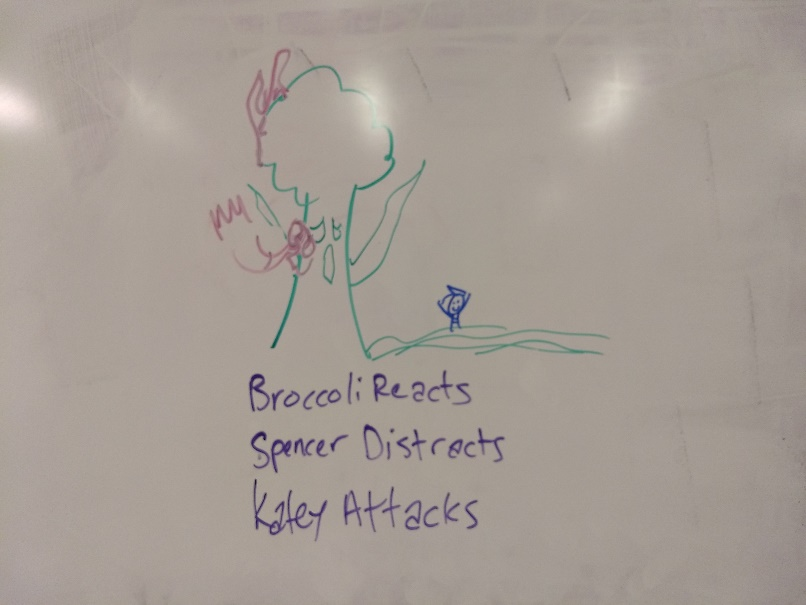 Broccoli Reacts
Spencer Distracts
Katey Attacks